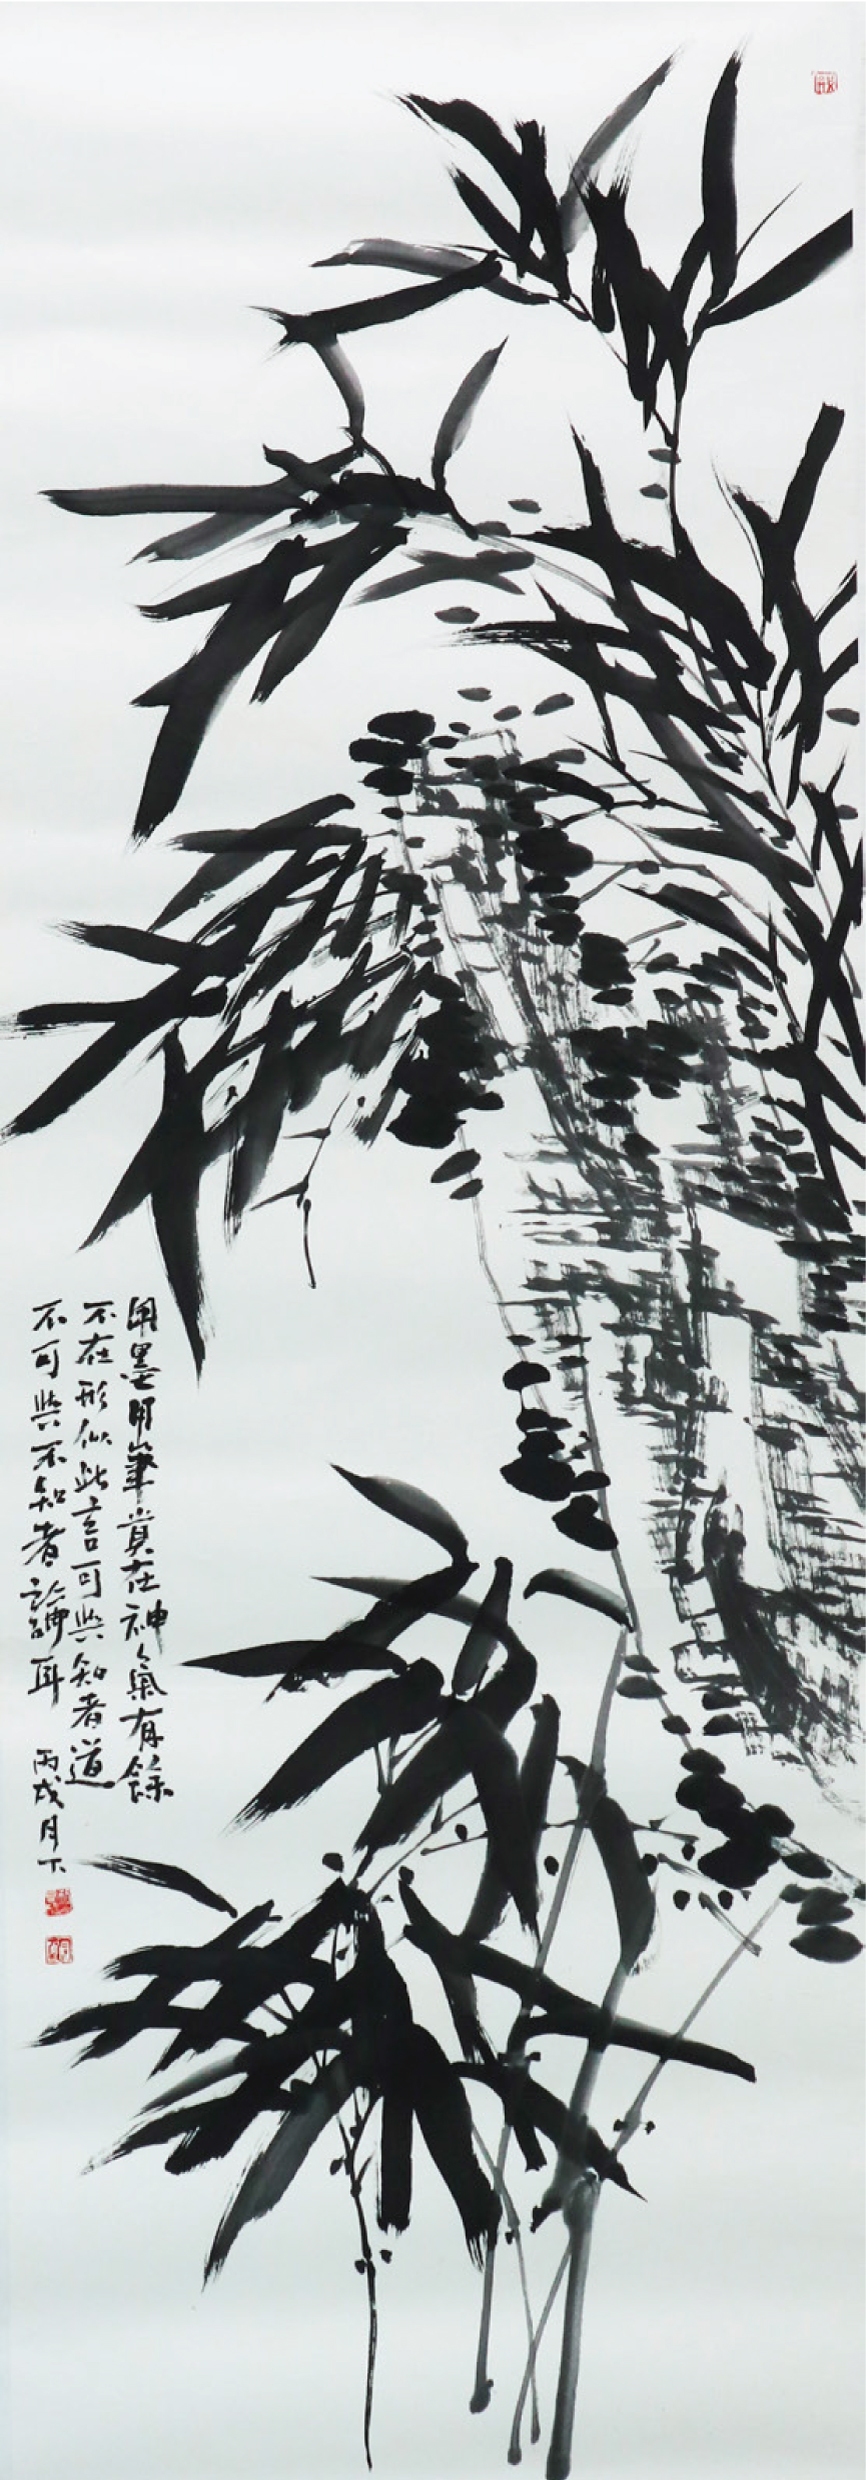 用墨用筆貴在神氣有餘
不在形似此言可與知者道
不可與不知者論耳
丙戌月下